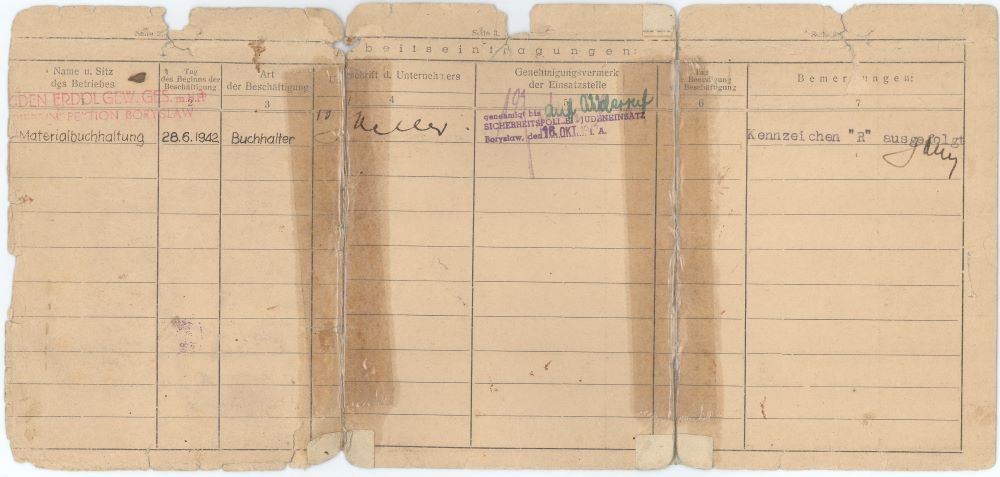 Seite 2
Seite 3.
Arbeitseintragungen:
Name u. Sitz
des Betriebes
Tag
des Beginns der
Beschäftigung
2
Art
der Beschäftigung
3
schrift d. Unternehmers
4
Genehmigungsvermerk
der Einsatzstelle
Tag
Beendigung
Beschäftigung
6
Bemerkungen:
7
ERDÖL GEW. GES. m.b.H
BORYSLAW
Materialbuchhaltung
28.6.1942
Buchhalter
genehmigt bis auf Widerruf
SICHERHEITSPOLIZEI JUDENEINSATZ
Boryslaw, den 16. OKT. I. A.
Kennzeichen "R" ausgefolgt